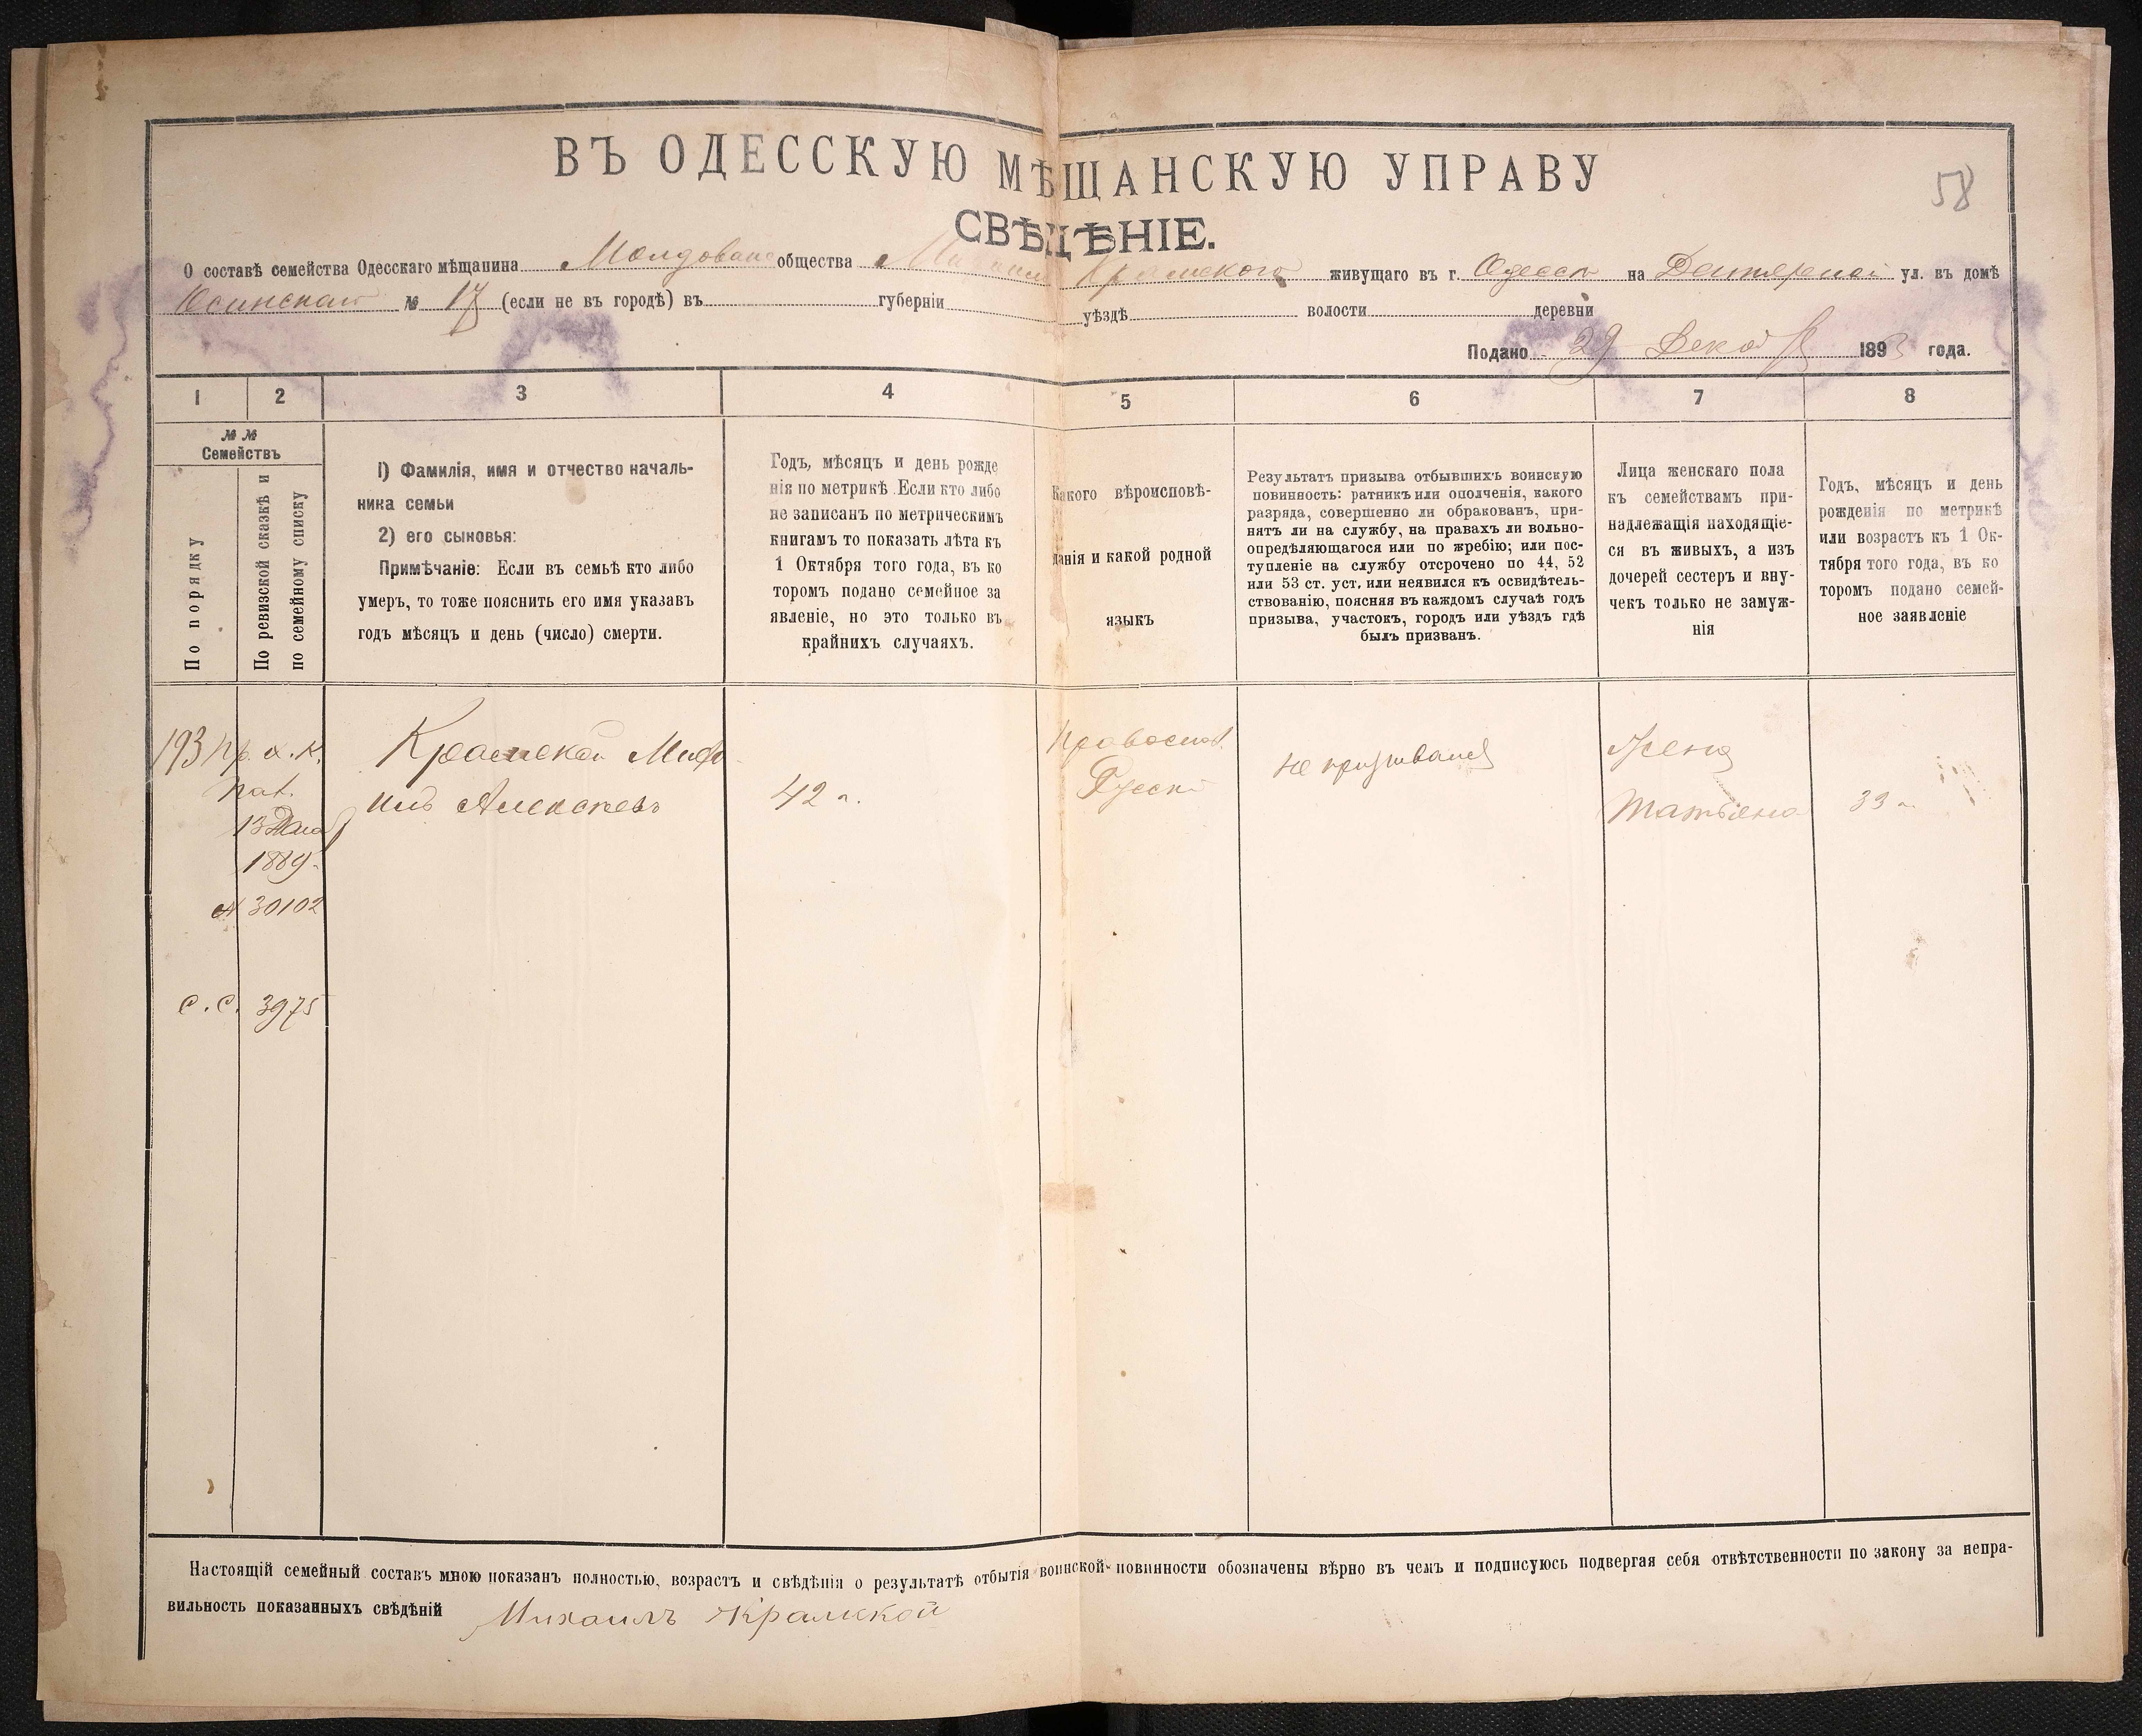 ВЪ ОДЕССКУЮ МѢЩАНСКУЮ УПРАВУ
58
СВѢДѢНІЕ.
О составѣ семейства Одесскаго мѣщанина Молдован общества Крамского живущаго въ г. Одессѣ на ул. въ домѣ
Осинской № 17 (если не въ городѣ) въ губерніи уѣздѣ волости деревни
Подано 29 Декаб 1893 года.
1 2 3 4 5 6 7 8
№№ Семействъ
По порядку
По ревизской сказкѣ и
по семейному списку
1) Фамилія, имя и отчество началь-
ника семьи
2) его сыновья:
Примѣчаніе: Если въ семьѣ кто либо
умеръ, то тоже пояснить его имя указавъ
годъ мѣсяцъ и день (число) смерти.
Годъ, мѣсяцъ и день рожде
нія по метрикѣ. Если кто либо
не записанъ по метрическимъ
книгамъ то показать лѣта къ
1 Октября того года, въ ко
торомъ подано семейное за
явленіе, но это только въ
крайнихъ случаяхъ.
Какого вѣроисповѣ-
данія и какой родной
языкъ
Результатъ призыва отбывшихъ воинскую
повинность: ратникъ или ополченія, какого
разряда, совершенно ли обракованъ, при-
нятъ ли на службу, на правахъ ли вольно-
опредѣляющагося или по жребію; или пос-
тупленіе на службу отсрочено по 44, 52
или 53 ст. уст. или неявился къ освидѣтель-
ствованію, поясняя въ каждомъ случаѣ годъ
призыва, участокъ, городъ или уѣздъ гдѣ
былъ призванъ.
Лица женскаго пола
къ семействамъ при-
надлежащія находящіе-
ся въ живыхъ, а изъ
дочерей сестеръ и вну-
чекъ только не замуж-
нія
Годъ, мѣсяцъ и день
рожденія по метрикѣ
или возрастъ къ 1 Ок-
тября того года, въ ко
торомъ подано семей-
ное заявленіе
193 пр. х. к.
13
1889
№ 30102
с. с. 3975
Крамской Миха
илъ Алексѣевъ
42 л.
Православ.
Русскі
не призывался
Жена
Татьяна
33 л.
Настоящій семейный составъ мною показанъ полностью, возрастъ и свѣдѣнія о результатѣ отбытія воинской повинности обозначены вѣрно въ чемъ и подписуюсь подвергая себя отвѣтственности по закону за непра-
вильность показанныхъ свѣдѣній Михаилъ Крамской